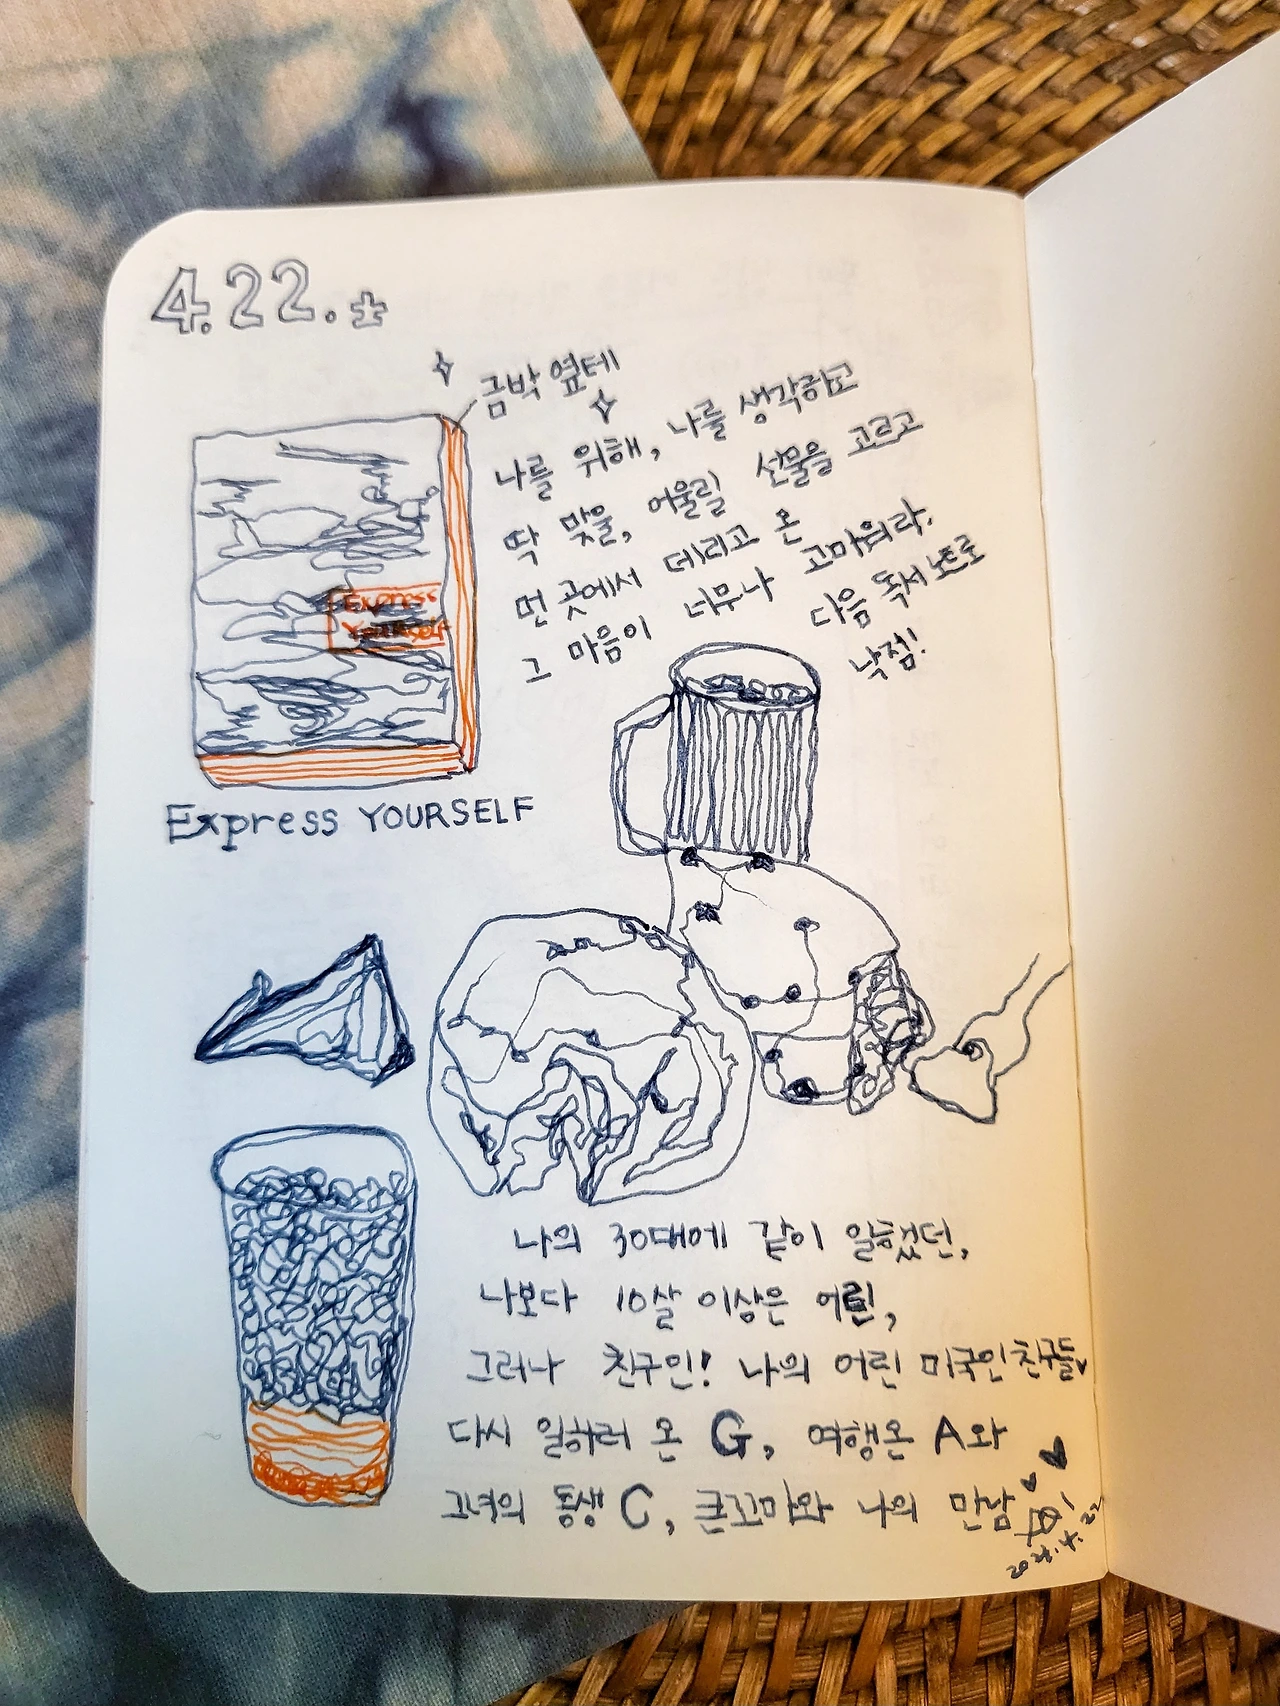 4.22.土
금박 옆테
나를 위해, 나를 생각하고
딱 맞을, 어울릴 선물을 고르고
먼 곳에서 데리고 온
그 마음이 너무나 고마워라.
다음 독서노트로
낙점!
Express
Yourself
Express YOURSELF
나의 30대에 같이 일했던,
나보다 10살 이상은 어린,
그러나 친구인! 나의 어린 미국인친구들
다시 일하러 온 G, 여행온 A와
그녀의 동생 C, 큰꼬마와 나의 만남